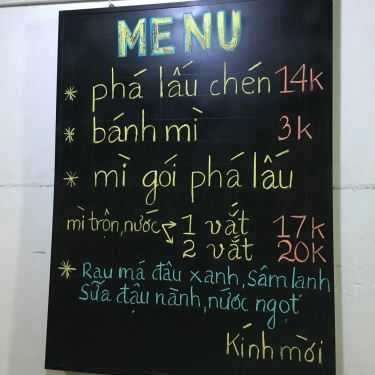 MENU
* phá lấu chén 14k
* bánh mì 3k
* mì gói phá lấu
mì trộn, nước 1 vắt 17k
2 vắt 20k
* Rau má đâu xanh, sâm lạnh
Sữa đậu nành, nước ngọt
Kính mời